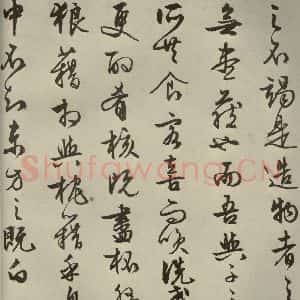 之不竭是造物者之
無盡藏也而吾與子之
所共食客喜而笑洗盞
更酌肴核既盡杯盤
狼藉相與枕藉乎舟
中不知東方之既白
Shufawang.CN